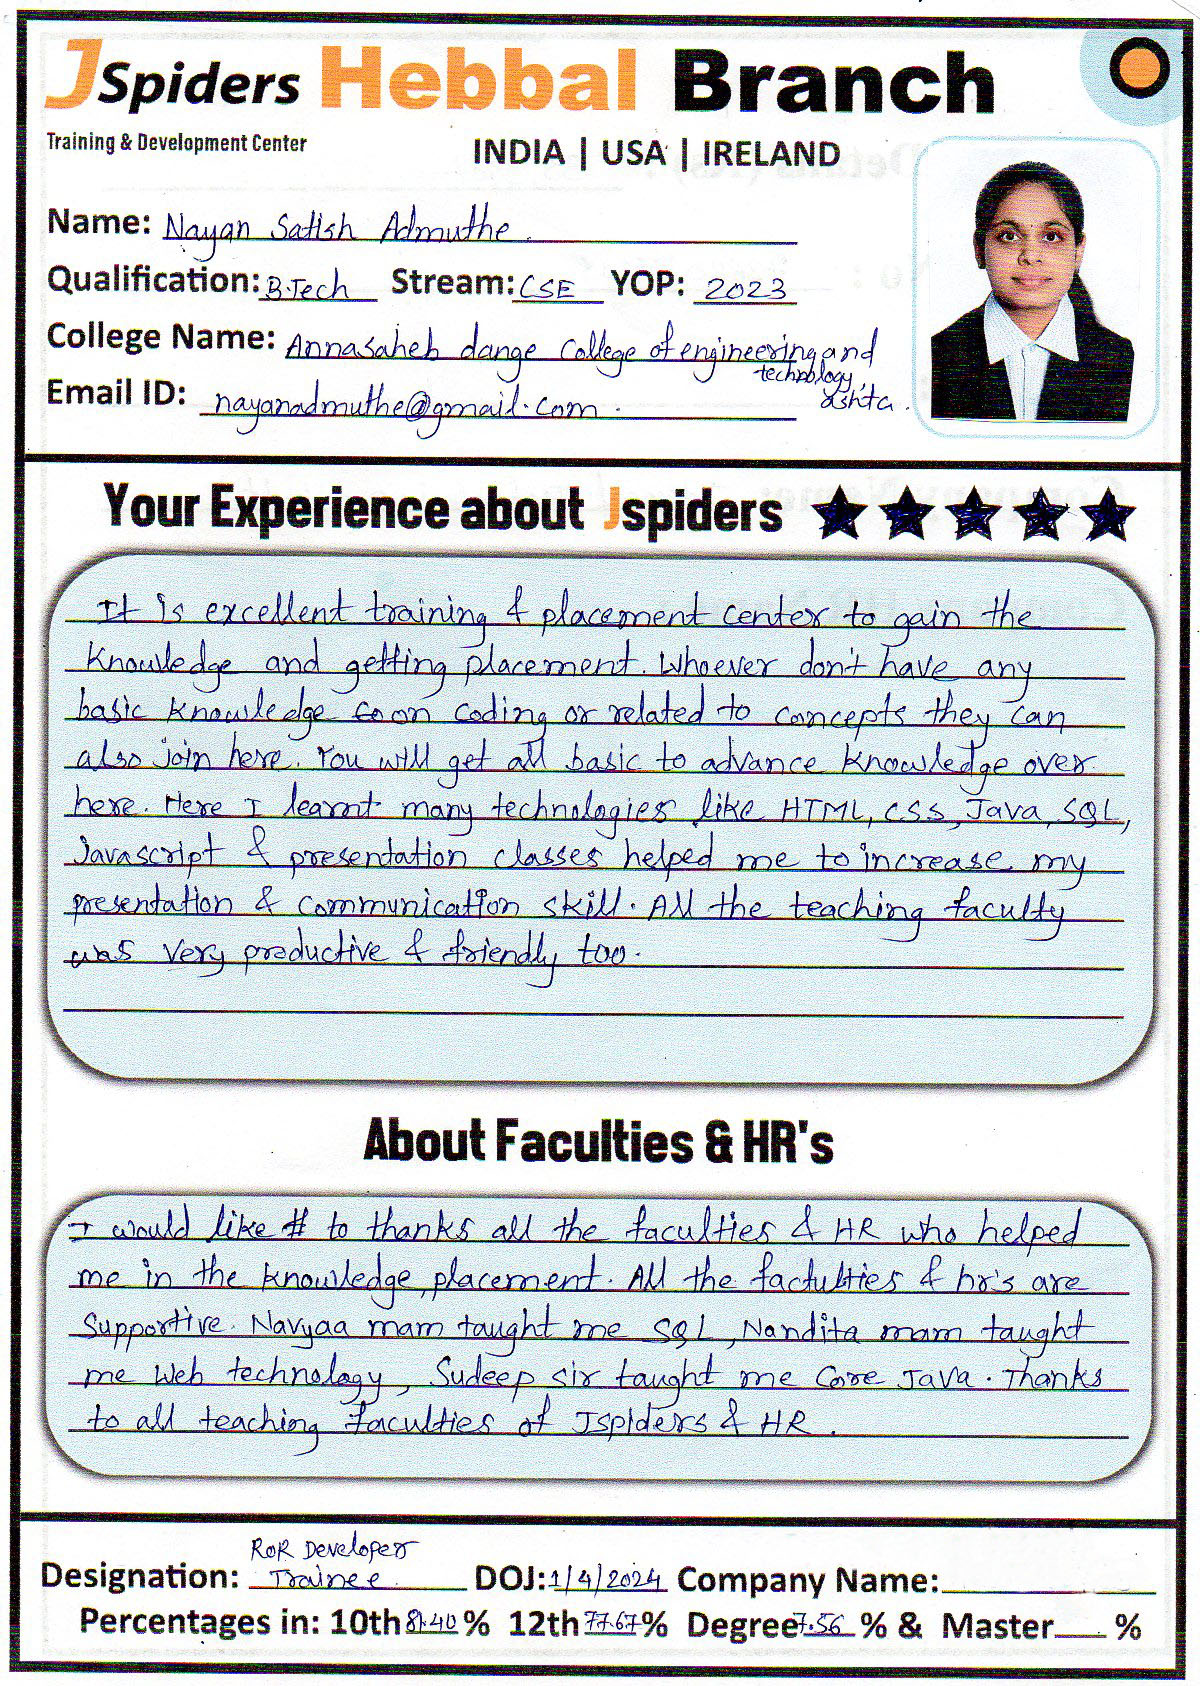 JSpiders Hebbal Branch
Training & Development Center
INDIA | USA | IRELAND
Name: Nayan Satish Admuthe
Qualification: B.Tech Stream: CSE YOP: 2023
College Name: Annasaheb dange College of engineering and
technology,
ashta.
Email ID: nayanadmuthe@gmail.com.
Your Experience about Jspiders
It is excellent training & placement center to gain the
knowledge and getting placement. Whoever don't have any
basic knowledge on coding or related to concepts they can
also join here. You will get all basic to advance knowledge over
here. Here I learnt many technologies like HTML, CSS, Java, SQL,
Javascript & presentation classes helped me to increase my
presentation & communication skill. All the teaching faculty
was very productive & friendly too.
About Faculties & HR's
I would like to thanks all the faculties & HR who helped
me in the knowledge, placement. All the factulties & hr's are
Supportive. Navyaa mam taught me SQL, Nandita mam taught
me Web technology, Sudeep sir taught me Core Java. Thanks
to all teaching faculties of Jspiders & HR.
RoR Developer
Designation: Trainee DOJ: 1/4/2024 Company Name:
Percentages in: 10th 81.40 % 12th 77.67 % Degree 7.56 % & Master %